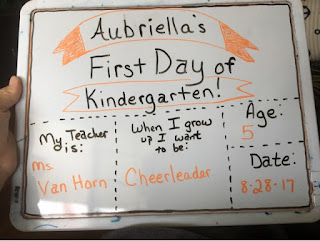 Aubriella's
First Day of
Kindergarten!
My Teacher
is:
Ms.
Van Horn
When I grow
up I want
to be:
Cheerleader
Age:
5
Date:
8-28-17